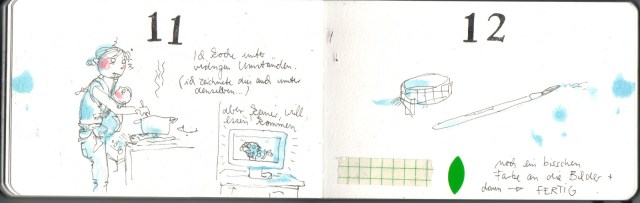 11
Ich koche unter
widrigen Umständen.
(ich zeichnete dies auch unter
denselben...)
aber keiner will
essen kommen
12
noch ein bisschen
Farbe an die Bilder +
dann → FERTIG